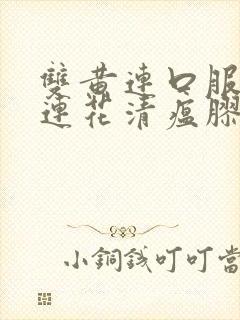 雙黃連口服
連花清瘟膠
小銅錢叮叮當